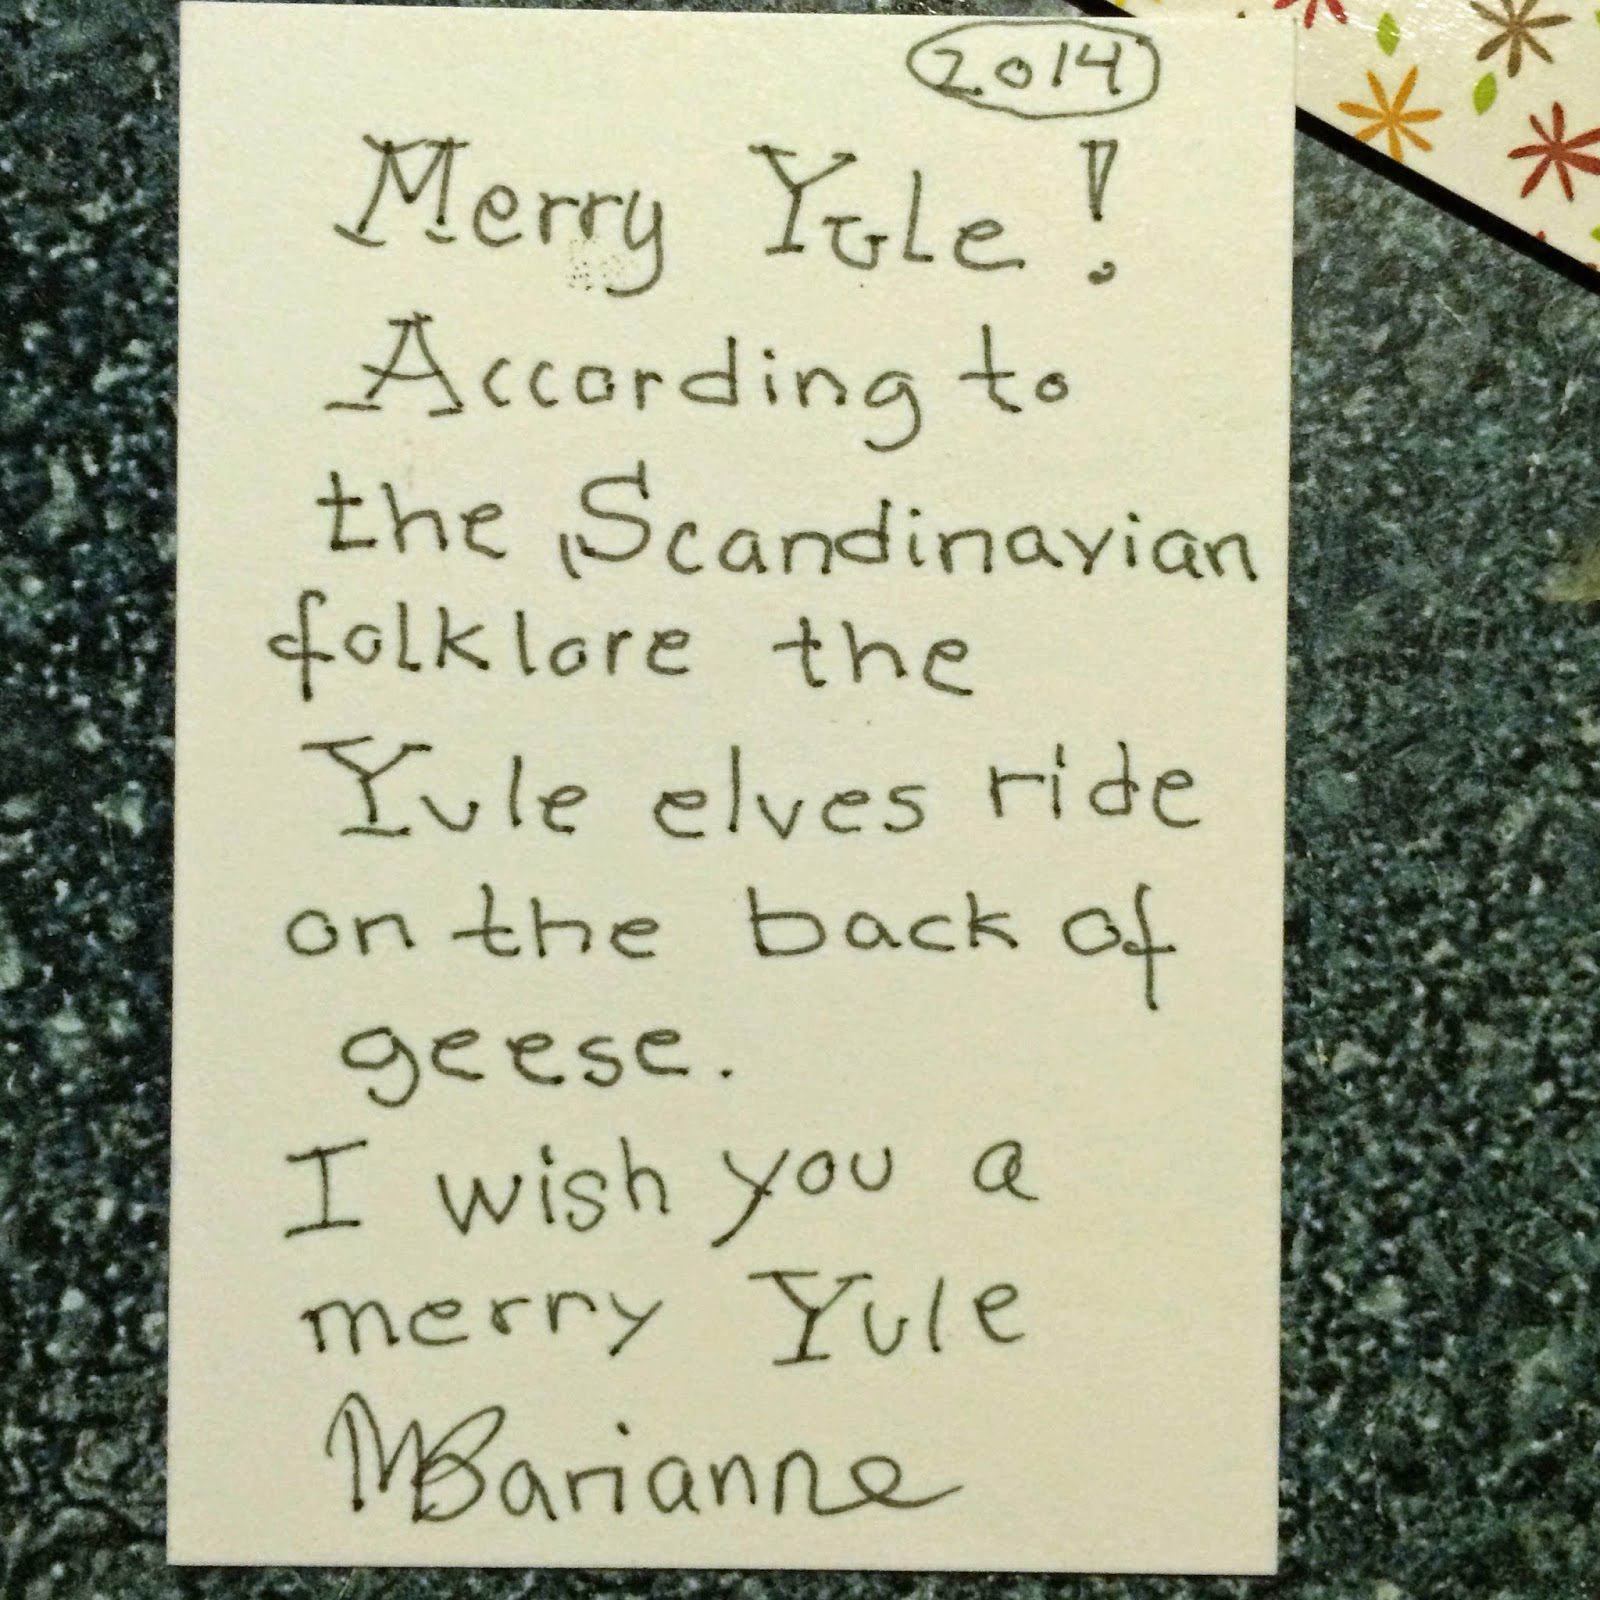 2014
Merry Yule!
According to
the Scandinavian
folklore the
Yule elves ride
on the back of
geese.
I wish you a
merry Yule
Marianne